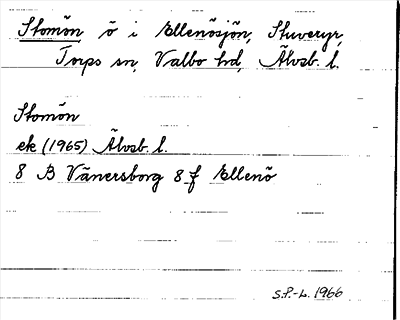 Stomön, ö i Ellenösjön, Stuveryr,
Torps sn, Valbo hd, Älvsb. l.
Stomön
ek (1965) Älvsb. l.
8 B Vänersborg 8 f Ellenö
S.P.-L. 1966